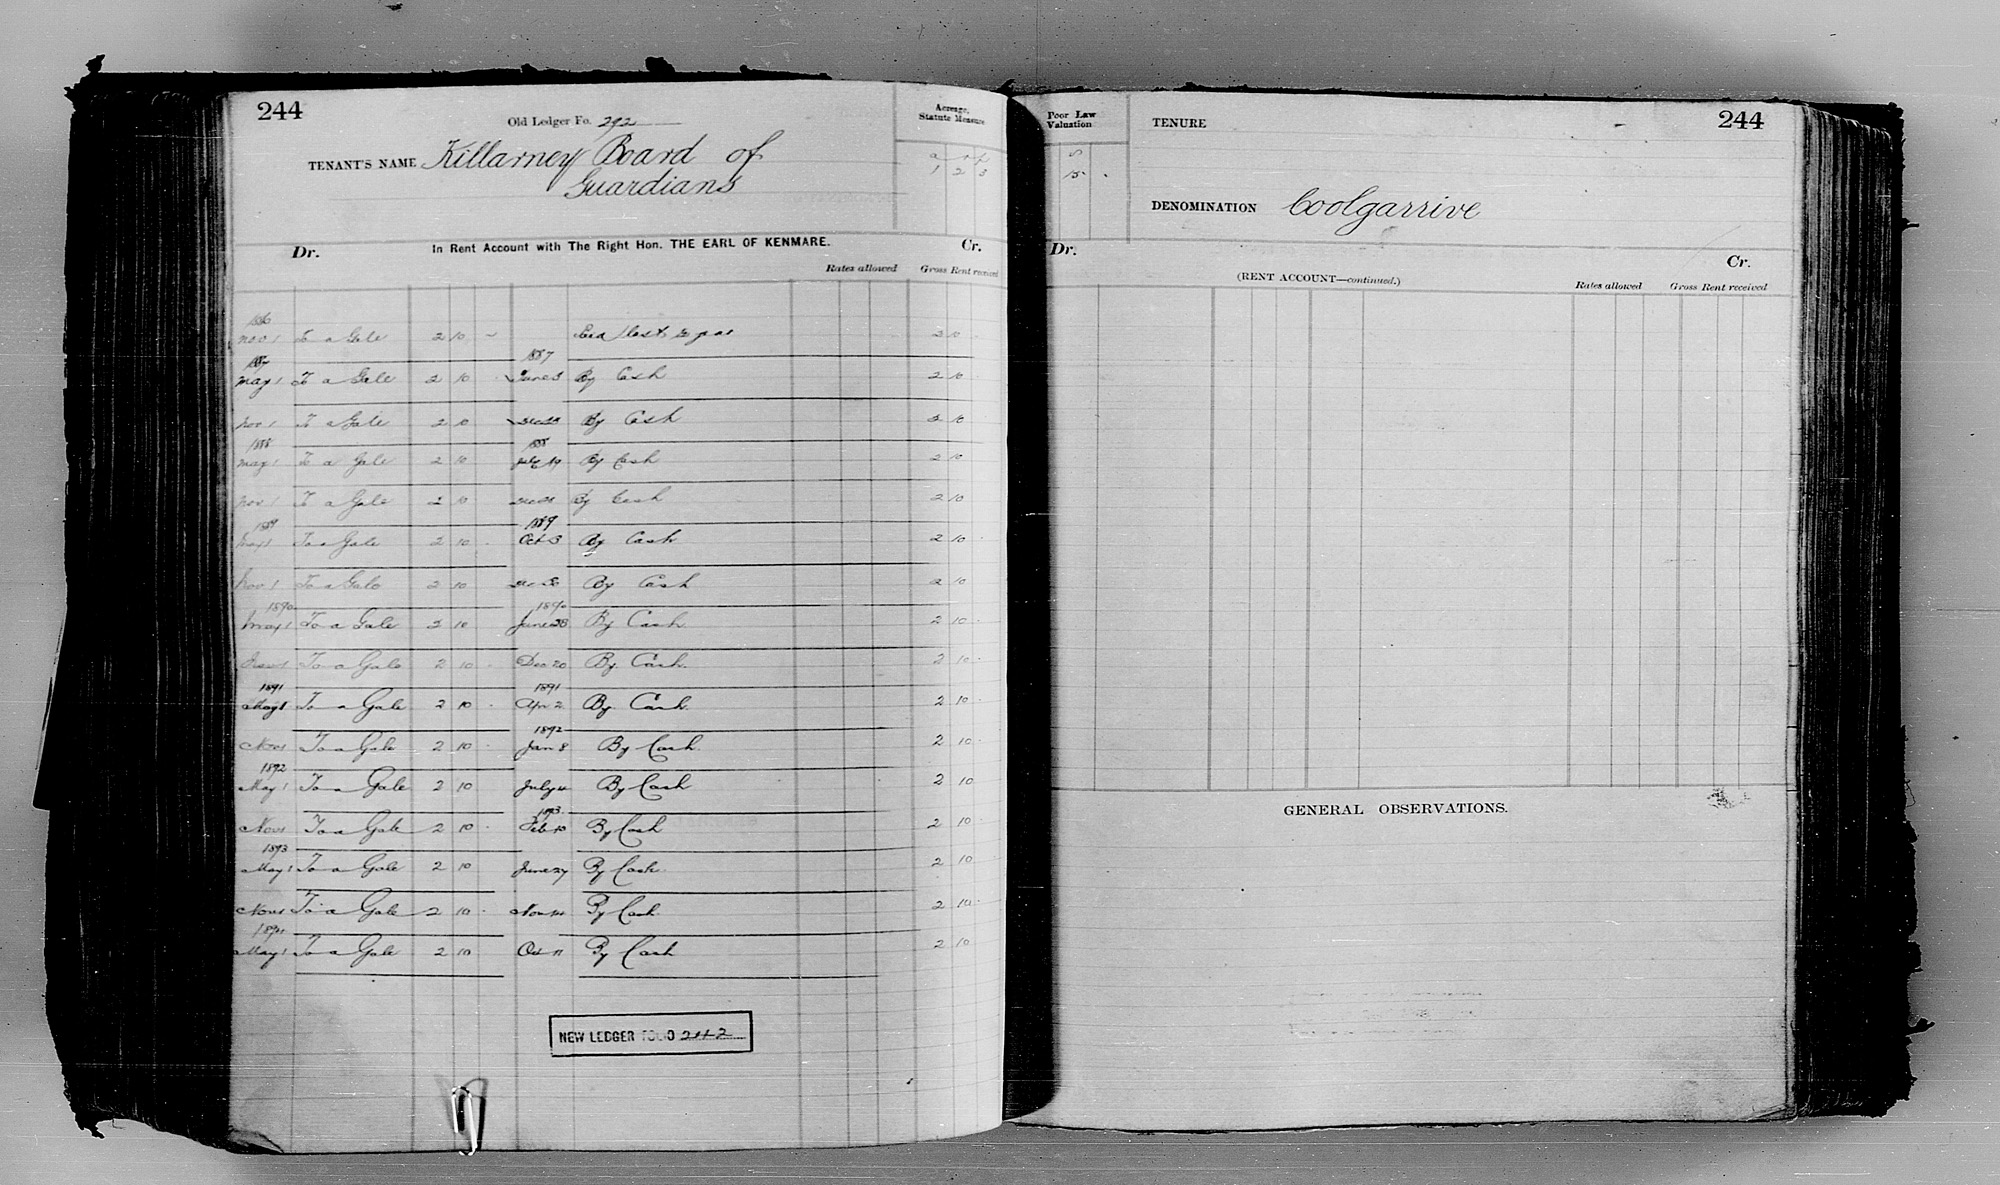 244
Old Ledger Fo. 292
TENANT'S NAME Killarney Board of
Guardians
Acreage,
Statute Measure
a r p
1 2 3
In Rent Account with The Right Hon. THE EARL OF KENMARE.
Dr. Cr.
Rates allowed Gross Rent received
1886
Nov 1 To a Gale 2 10 - 2 10
1887 1887
May 1 To a Gale 2 10 June 3 By Cash 2 10
Nov 1 To a Gale 2 10 By Cash 2 10
1888 1888
May 1 To a Gale 2 10 July 19 By Cash 2 10
Nov 1 To a Gale 2 10 By Cash 2 10
1889 1889
May 1 To a Gale 2 10 Oct 3 By Cash 2 10
Nov 1 To a Gale 2 10 By Cash 2 10
1890 1890
May 1 To a Gale 2 10 June 28 By Cash 2 10
Nov 1 To a Gale 2 10 Dec 20 By Cash 2 10
1891 1891
May 1 To a Gale 2 10 Apr 2 By Cash 2 10
1892
Nov 1 To a Gale 2 10 Jan 8 By Cash 2 10
1892
May 1 To a Gale 2 10 July By Cash 2 10
1893
Nov 1 To a Gale 2 10 Feb 10 By Cash 2 10
1893
May 1 To a Gale 2 10 June 27 By Cash 2 10
Nov 1 To a Gale 2 10 Nov By Cash 2 10
1894
May 1 To a Gale 2 10 Oct 11 By Cash 2 10
NEW LEDGER FOLIO 242
Poor Law
Valuation
TENURE
244
s
15 -
DENOMINATION Coolgarrive
Dr. Cr.
(RENT ACCOUNT—continued.)
Rates allowed Gross Rent received
GENERAL OBSERVATIONS.